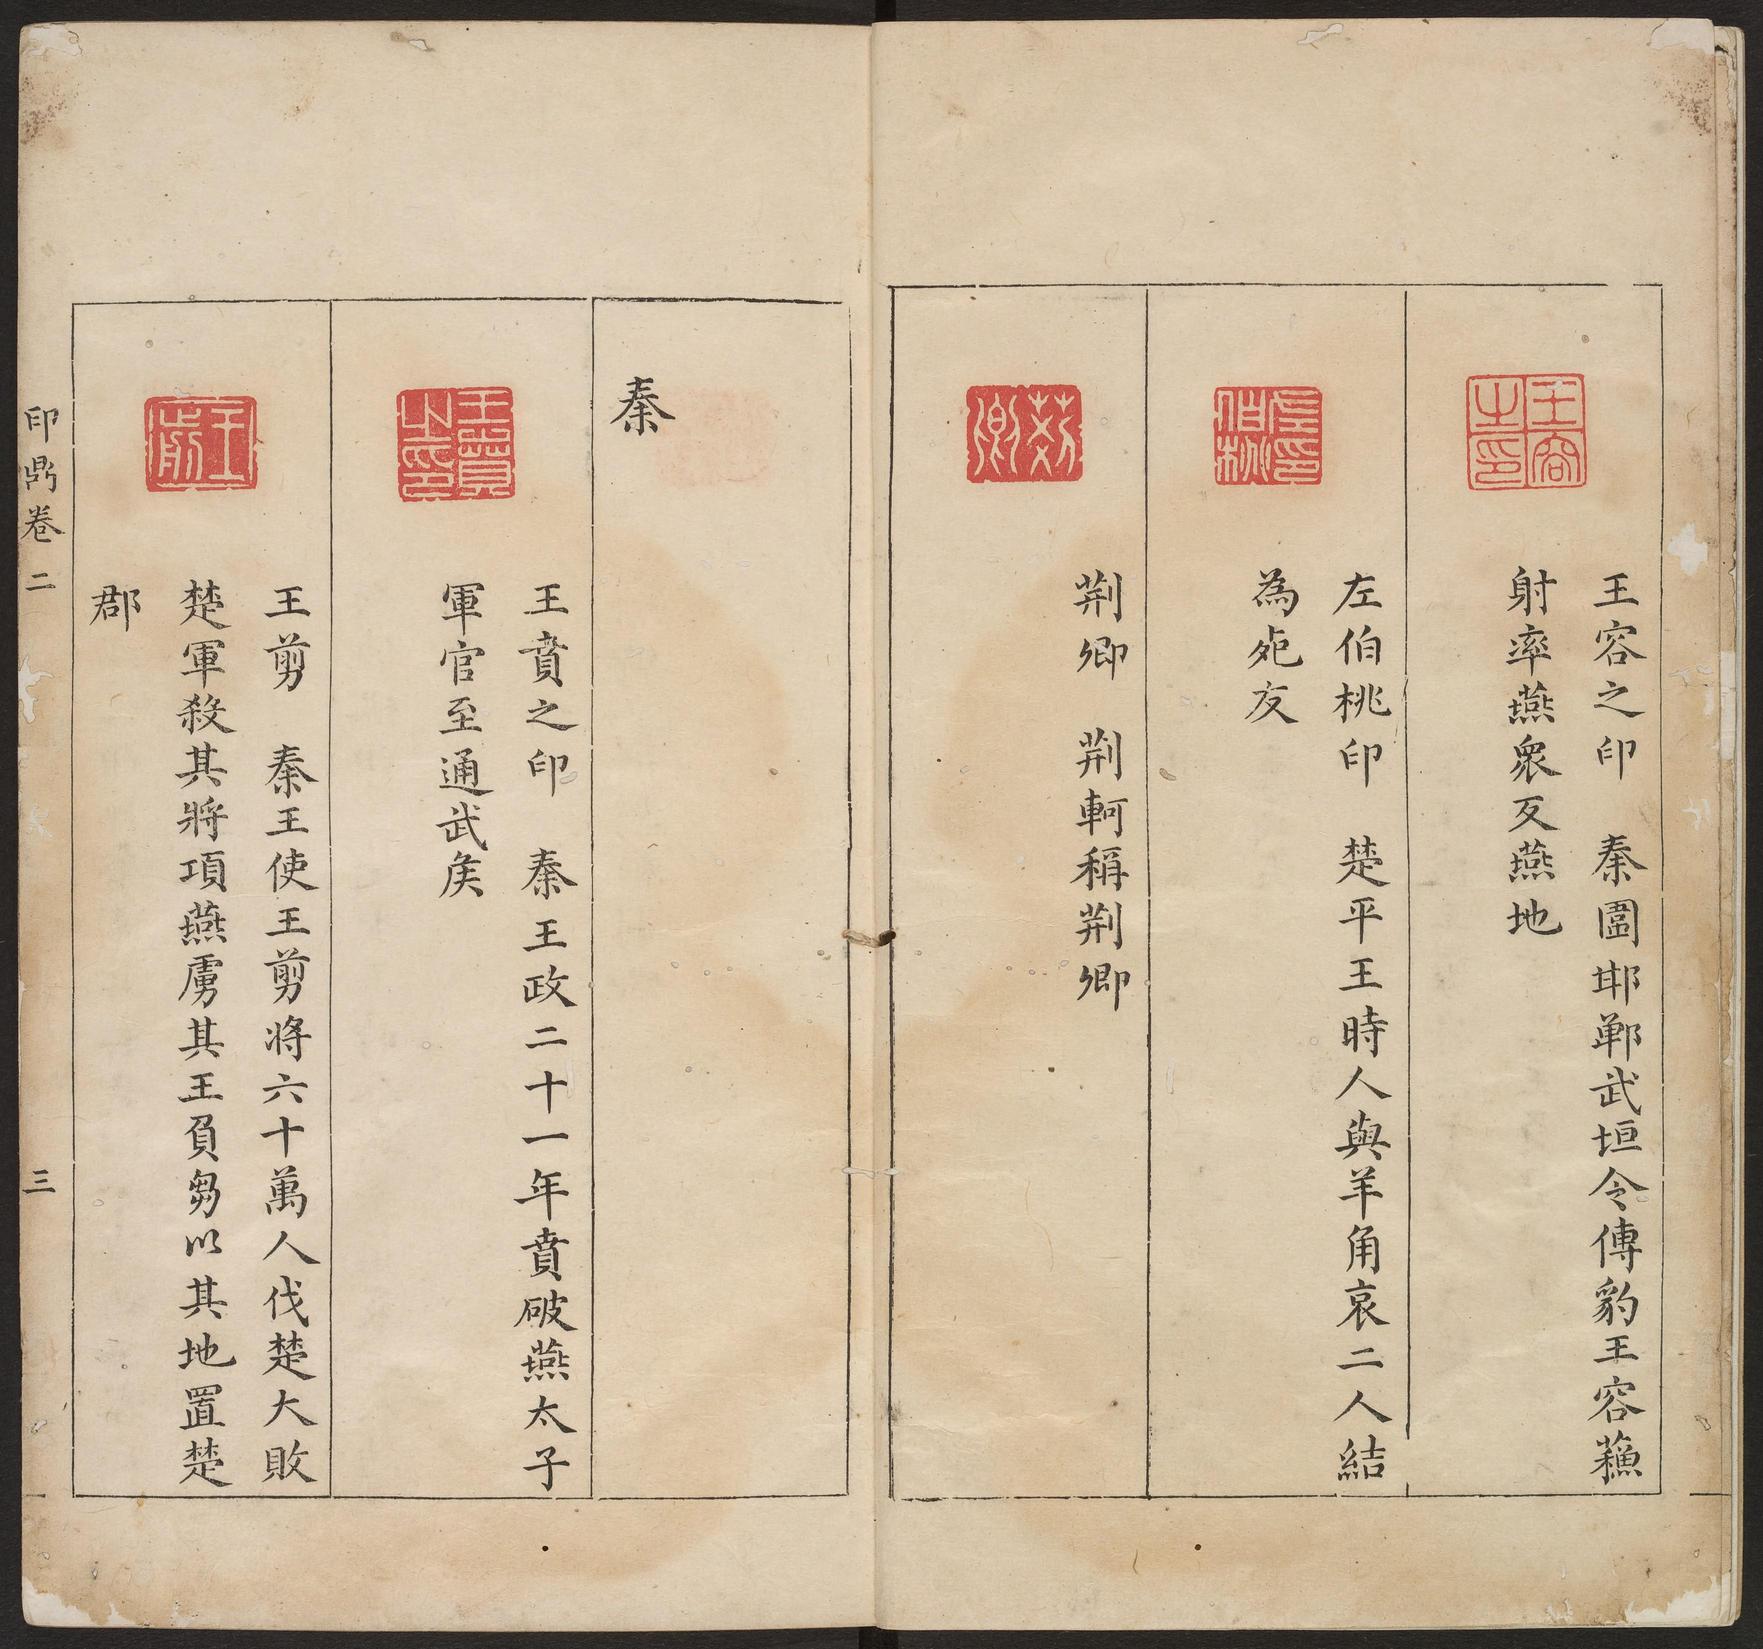 王容之印
王容之印　秦圍邯鄲武垣令傅豹王容蘓
射率燕衆反燕地
左伯桃印
左伯桃印　楚平王時人與羊角哀二人結
為死友
荆卿
荆卿　荆軻稱荆卿
秦
王賁之印
王賁之印　秦王政二十一年賁破燕太子
軍官至通武侯
王剪
王剪　秦王使王剪將六十萬人伐楚大敗
楚軍殺其將項燕虜其王負芻以其地置楚
郡
印鼎卷二　三